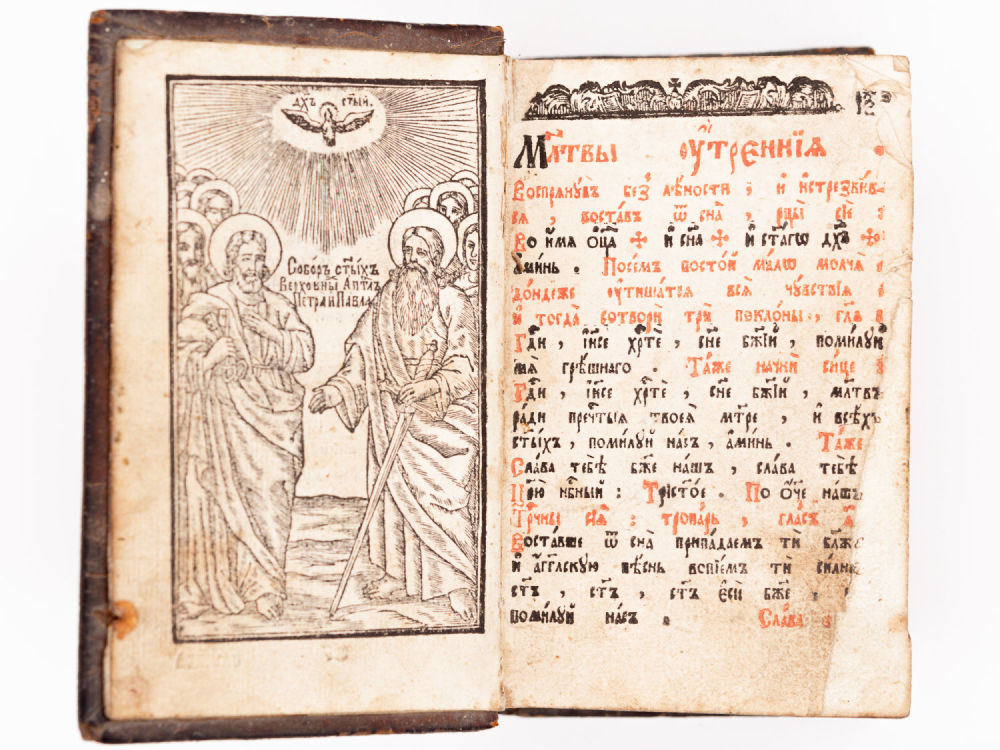 дх҃ъ ст҃ый
Собо́ръ ст҃ы́хъ
Верхо́вны а҆п҇тлъ
Петра̀ и҆ Па́вла
Мл҃твы ѹ҆́треннїѧ .
Воспрѧнꙋ́въ без̾ лѣ́ности , и҆ и҆стрезви́в
сѧ , воста́въ ѿ сна̀ , рцы̀ сїѐ :
Во и҆́мѧ ѻ҆ц҃а̀ ✢ и҆ сн҃а ✢ и҆ ст҃а́гѡ дх҃а ✢
а҆ми́нь . Посе́мъ посто́й ма́лѡ молчѧ̀
до́ндеже ѹ҆тиша́тсѧ всѧ̑ чꙋ̑вствїѧ
и҆ тогда̀ сотворѝ трѝ покло́ны , гл҃ѧ
Гд҇и , і҆и҃се хр҇тѐ , сн҃е бж҃їй , поми́лꙋй
мѧ̀ грѣ́шнаго . Та́же начнѝ си́це :
Гд҇и , і҆и҃се хр҇тѐ , сн҃е бж҃їй , мл҃твъ
ра́ди пречⷭ҇тыѧ твоеѧ̀ мт҃ре , и҆ всѣ́хъ
ст҃ы́хъ , поми́лꙋй на́съ , а҆ми́нь . Та́же
Сла́ва тебѣ̀ бж҃е на́шъ , сла́ва тебѣ̀
Цр҃ю̀ нб҇ный : Трист҃о́е . По ѻ҆́ч҃е на́шъ
Трⷪ҇чны сїѧ̑ : тропа́рь , гла́съ а҃
Воста́вше ѿ сна̀ припа́даемъ тѝ бл҃же
и҆ а҆́гг҃лскꙋю пѣ́снь вопїе́мъ тѝ
ст҃ъ , ст҃ъ , ст҃ъ є҆сѝ бж҃е ,
поми́лꙋй на́съ . Сла́ва